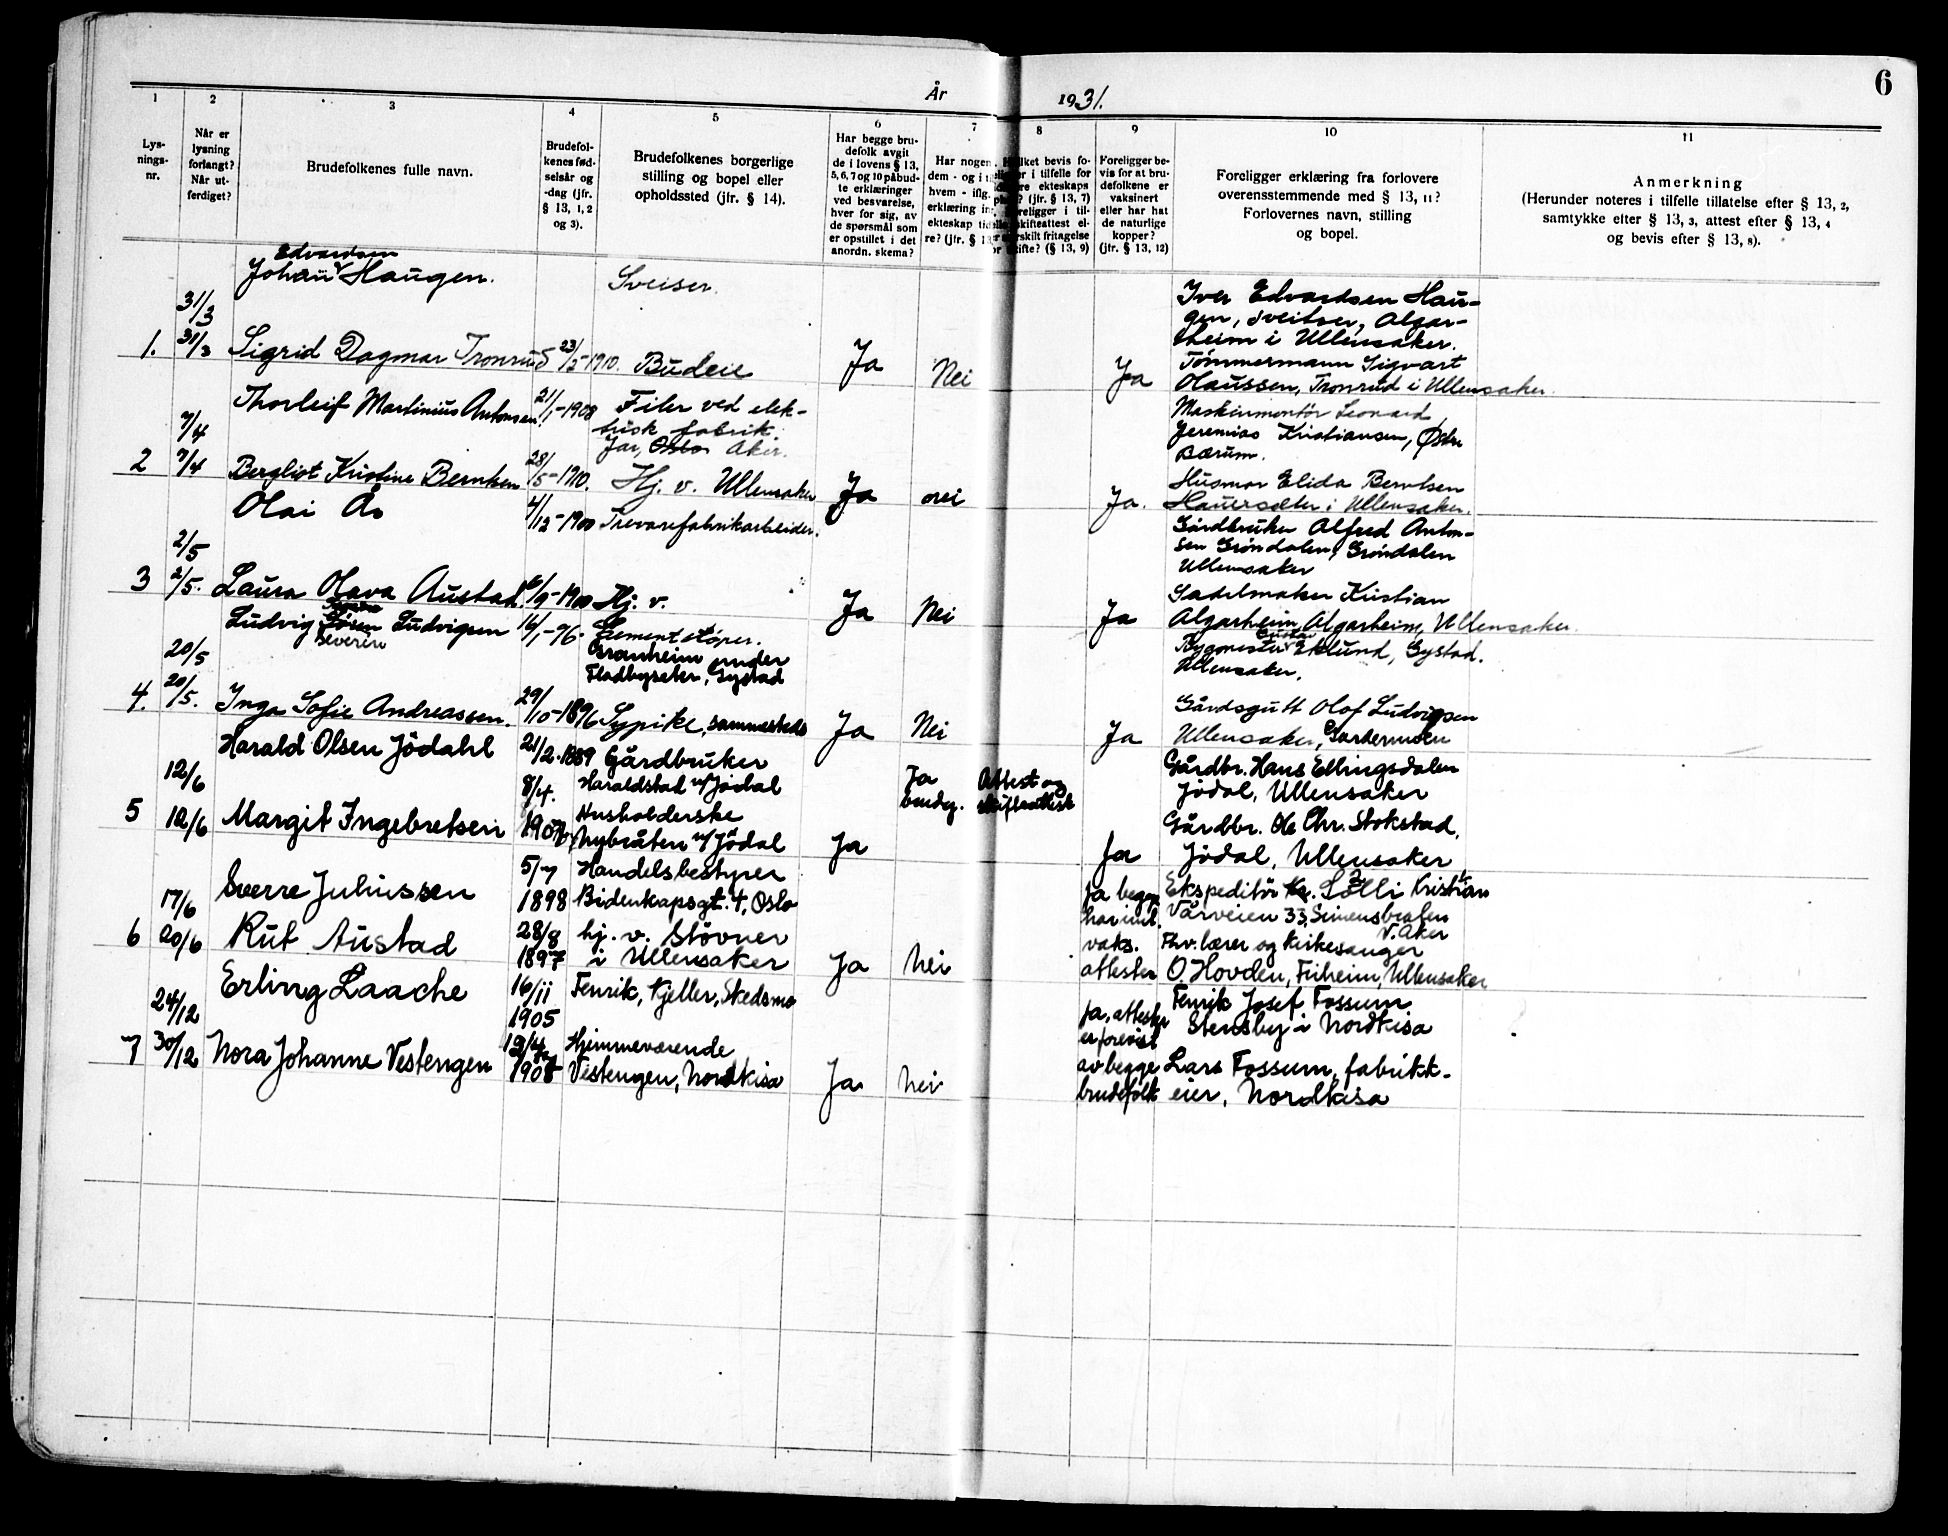 År 1931.
6
1 2 3 4 5 6 7 8 9 10 11
Lys-
nings-
nr.
Når er
lysning
forlangt?
Når ut-
ferdiget?
Brudefolkenes fulle navn.
Brudefol-
kenes fød-
selsår og
-dag (jfr.
§ 13, 1, 2
og 3).
Brudefolkenes borgerlige
stilling og bopel eller
opholdssted (jfr. § 14).
Har begge bru-
defolk avgit
de i lovens § 13,
5, 6, 7 og 10 påbud-
te erklæringer
ved besvarelse,
hver for sig, av
de spørsmål som
er opstillet i det
anordn. skema?
Har nogen
dem - og i
hvem - iflg.
erklæring in
ekteskap tid
re? (jfr. § 13
lket bevis fo-
r i tilfelle for
re ekteskaps
? (jfr. § 13, 7)
religger i til-
skifteattest el-
rskilt fritagelse
kifte? (§ 13, 9)
Foreligger be-
vis for at bru-
defolkene er
vaksinert
eller har hat
de naturlige
kopper?
(jfr. § 13, 12)
Foreligger erklæring fra forlovere
overensstemmende med § 13, 11?
Forlovernes navn, stilling
og bopel.
Anmerkning
(Herunder noteres i tilfelle tillatelse efter § 13, 2,
samtykke efter § 13, 3, attest efter § 13, 4
og bevis efter § 13, 8).
1.
31/3
31/3
Edvardsen
Johan Haugen.
Sveiser.
Sigrid Dagmar Tronrud
23/5-1910.
Budeie
Ja
Nei
Ja
Iver Edvardsen Hau-
gen, sveitser, Algar-
heim i Ullensaker.
Tömmermann Sigvart
Olaussen, Tronrud i Ullensaker.
2
7/4
7/4
Thorleif Martinius Antonsen
21/1-1908
Filer ved elek-
trisk fabrik.
Jar, Oslo Aker.
Bergliot Kristine Berntsen
28/5-1910.
Hj. v. Ullensaker
Ja
nei
Ja.
Maskinmontör Leonard
Jeremias Kristiansen, Østre
Bærum.
Husmor Elida Berntsen
Hauersæter i Ullensaker.
3
2/5
2/5.
Olai Ås
4/12-1900
Trevarefabrikarbeider.
Laura Olava Austad.
/9-1900
Hj. v.
Ja
Nei
Ja
Gårdbruker Alfred Anton-
sen Gröndalen, Gröndalen
Ullensaker
Sadelmaker Kristian
Algarheim, Algarheim, Ullensaker.
4.
20/5
20/5.
Ludvig Sören Ludvigsen
Severin
16/1-96.
Sementstöper.
Granheim under
Fladbyseter, Gystad
Inga Sofie Andreassen.
29/10-1896
Sypike, sammesteds
Ja
Nei
Ja
Bygmester Gustav Eklund, Gystad.
Ullensaker.
Gårdsgutt Olof Ludvigsen
Ullensaker, Gardermoen
5
12/6
12/6
Harald Olsen Jödahl
21/2-1889
Gårdbruker
Haraldstad u/Jödal
Margit Ingebretsen
8/4.
Husholderske
Nybråten u/Jödal
Ja
Ja
brudg.
Attest og
skifteattest
Ja
Gårdbr. Hans Ellingsdalen
Jödal, Ullensaker
Gårdbr. Ole Chr. Stokstad,
Jödal, Ullensaker
6
17/6
20/6
Sverre Juliussen
5/7
1898
Handelsbestyrer
Bidenkapsgt. 4, Oslo
Rut Austad
28/8
1897
hj. v. Stövner
i Ullensaker
Ja
Nei
Ja begge
har innl.
vaks.
attester
Ekspeditör Sölli Kristian
Vårveien 33, Simensbråten
V. Aker
Fhv. lærer og kirkesanger
O. Hovden, Friheim, Ullensaker
7
24/12
30/12
Erling Laache
16/11
1905
Fenrik, Kjeller, Skedsmo
Nora Johanne Vestengen
19/4
Hjemmeværende
Vestengen, Nordkisa
Ja
Nei
Ja, attester
er forevist
av begge
brudefolk
Fenrik Josef Fossum
Stensby i Nordkisa
Lars Fossum, fabrikk-
eier, Nordkisa